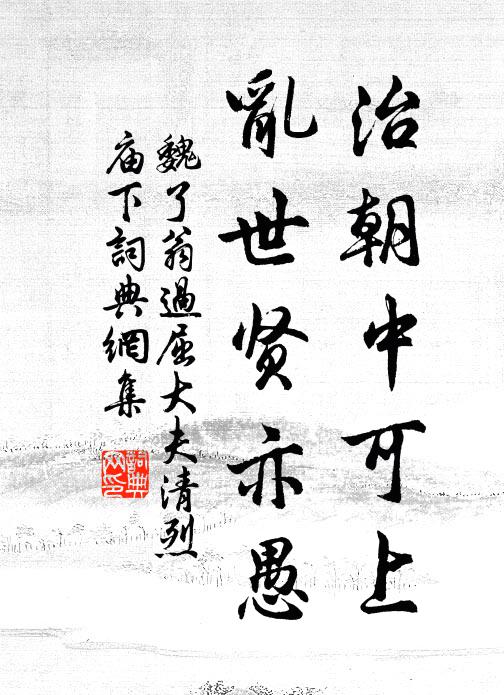 治朝中可上
亂世贤亦愚
魏了翁過屈大夫清烈
庙下詞典網集
詞典网印